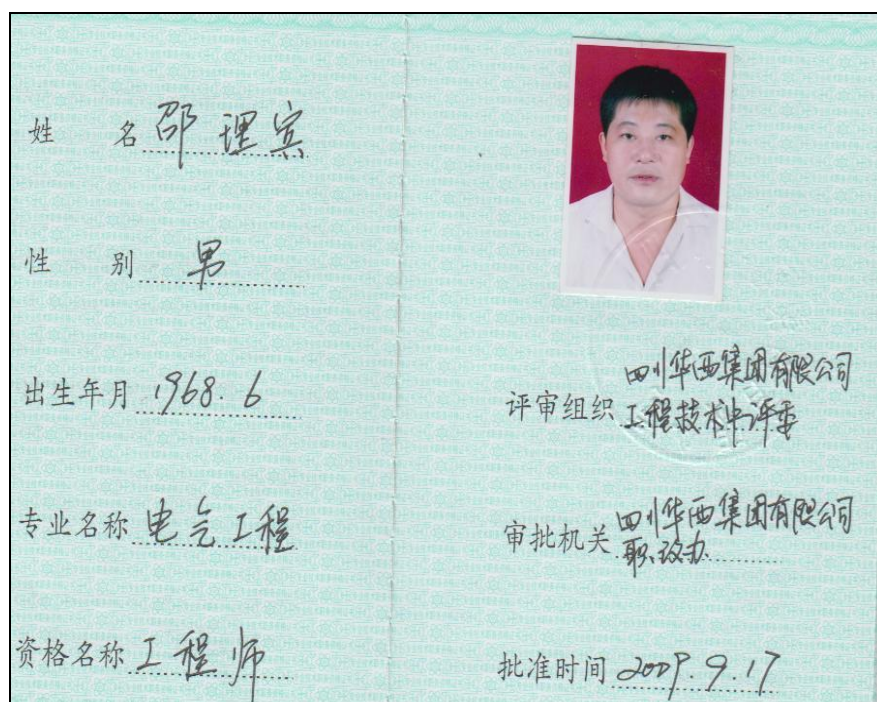 姓 名 邵理宾
性 别 男
出生年月 1968.6
专业名称 电气工程
资格名称 工程师
评审组织 四川华西集团有限公司
工程技术中评委
审批机关 四川华西集团有限公司
职改办
批准时间 2009.9.17